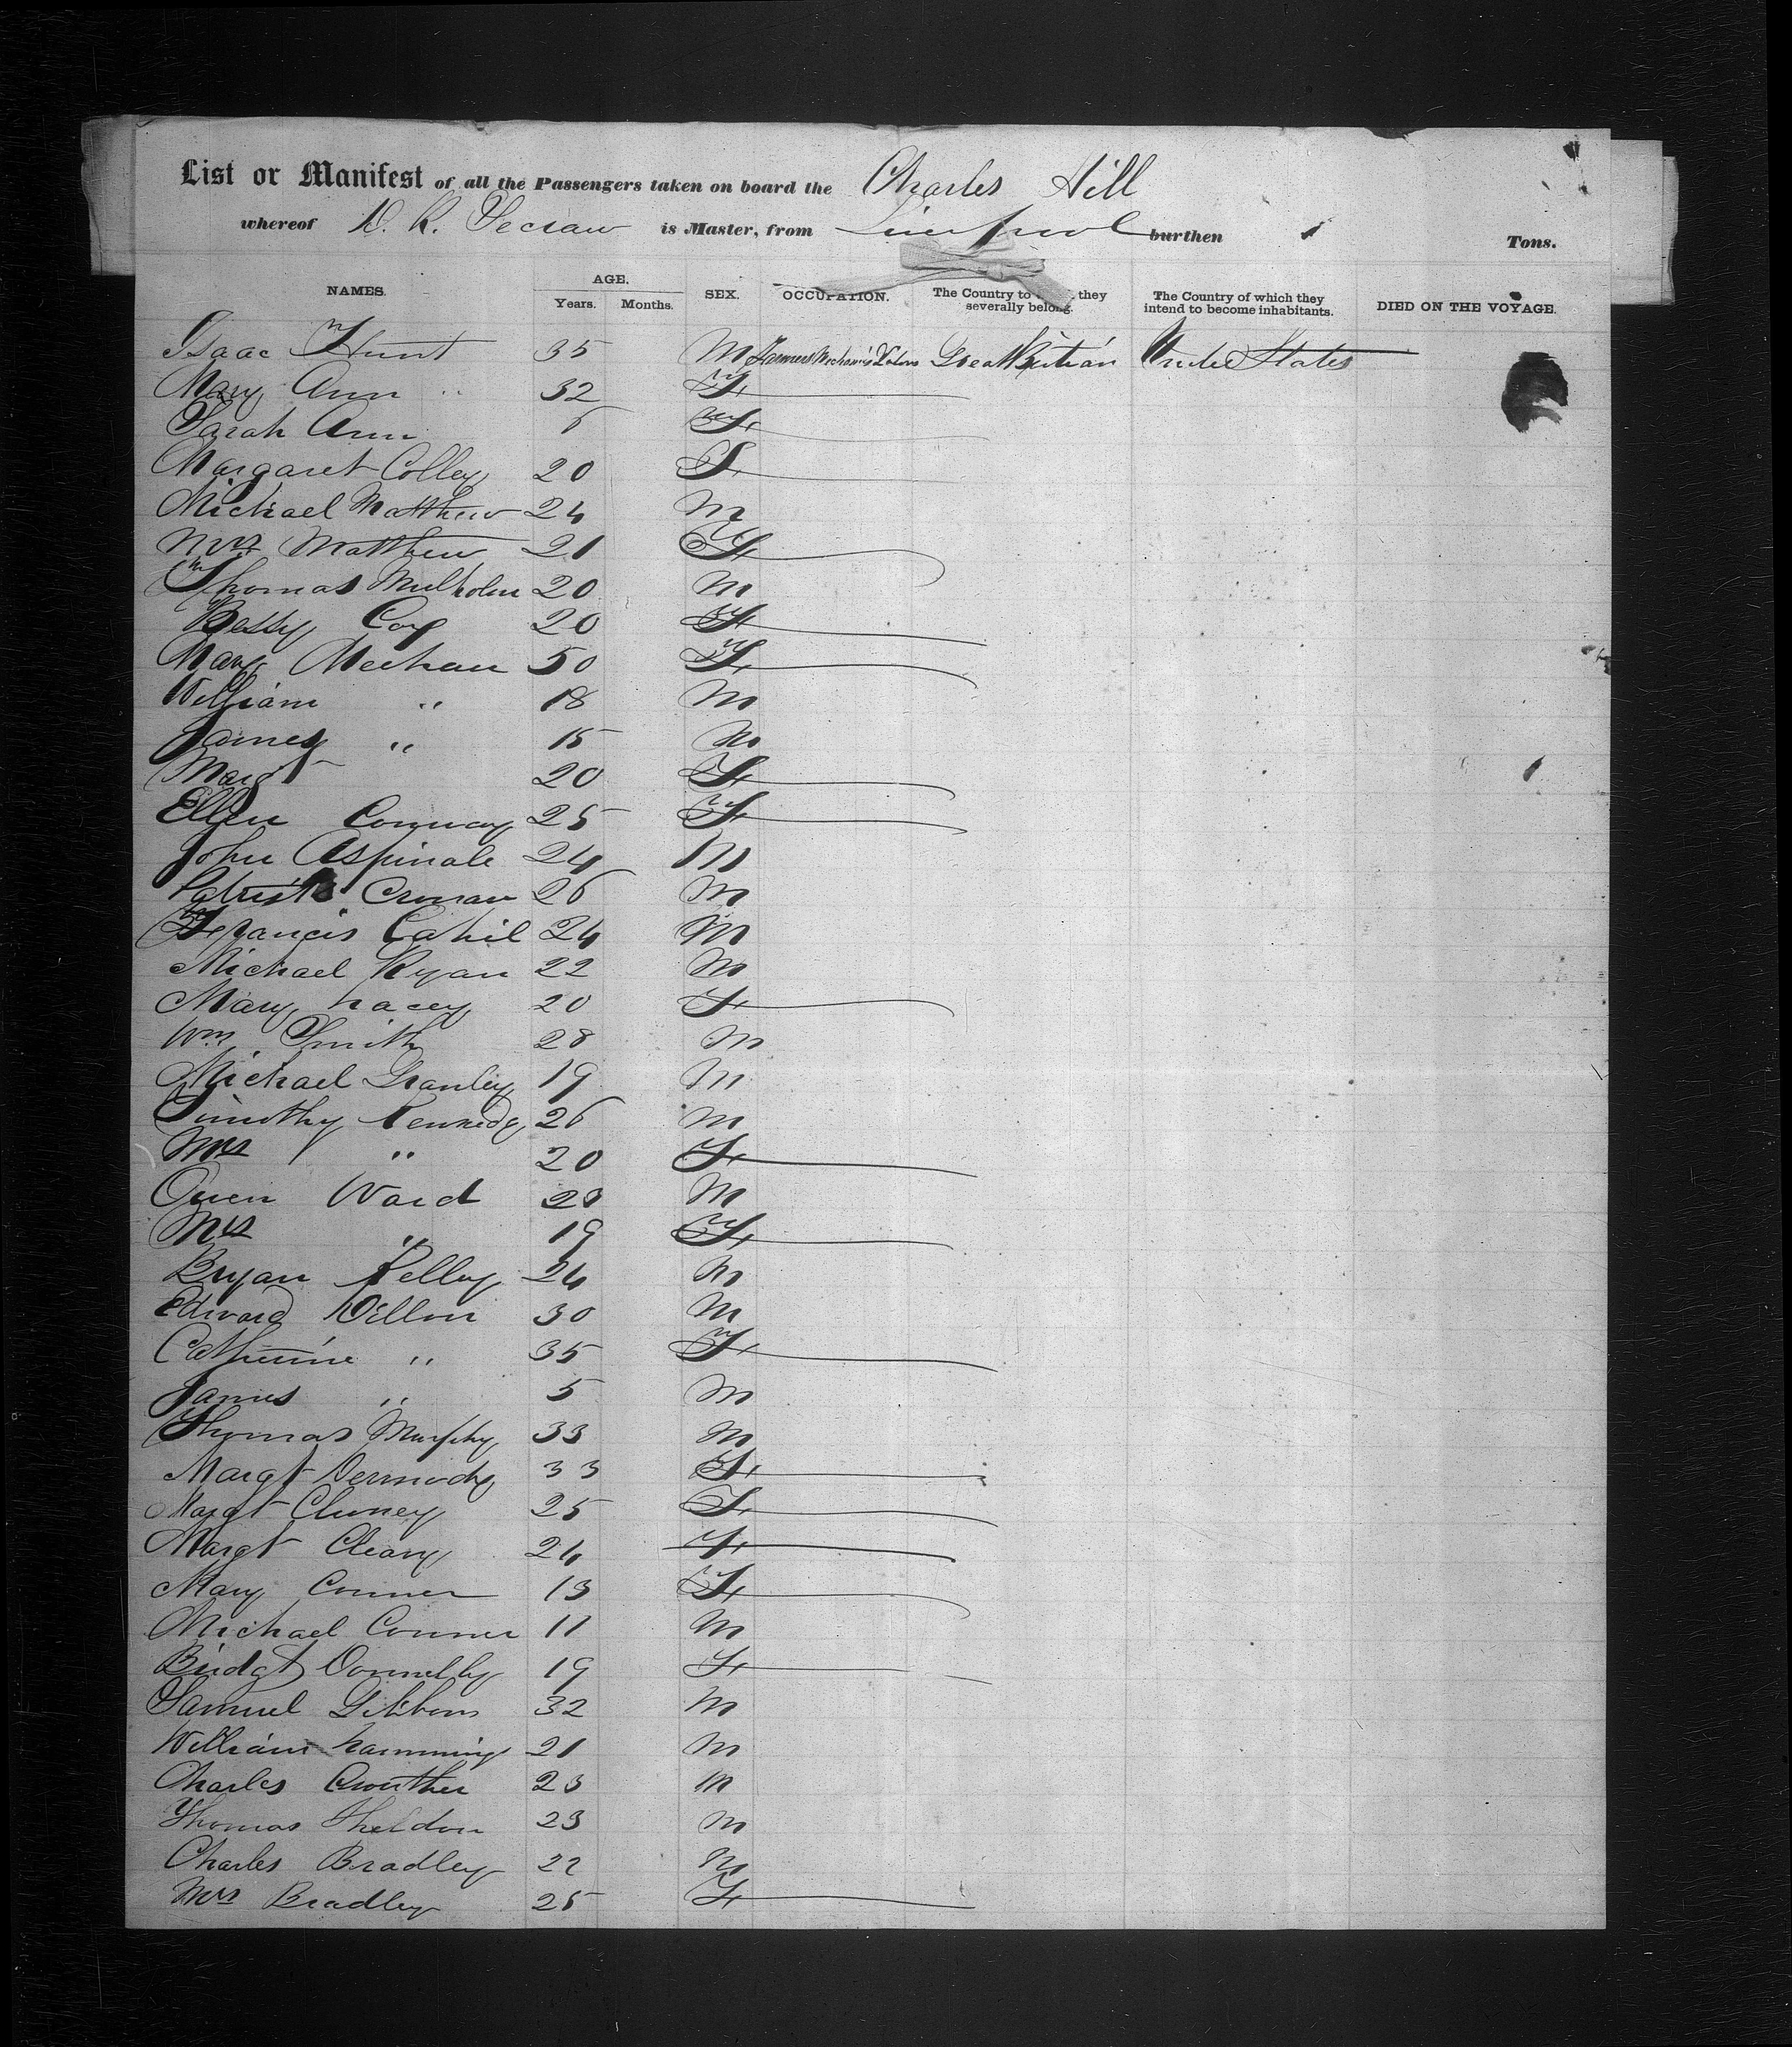 List or Manifest of all the Passengers taken on board the Charles Hill
whereof D. R. is Master, from Liverpool burthen Tons.
NAMES. AGE. Years. Months. SEX. OCCUPATION. The Country to they severally belong. The Country of which they intend to become inhabitants. DIED ON THE VOYAGE.
Isaac Hunt 35 M Farmers Mechanics Labors Great Britian United States
Mary Ann " 32 F
Sarah Ann 6 F
Margaret Colley 20 F
Michael Matthew 24 M
Mrs Matthew 21 F
Thomas Mulholm 20 M
Bessy Coy 20 F
Mary Meehan 50 F
William " 18 M
James " 15 M
Margt 20 F
Ellen Conway 25 F
John Aspinale 24 M
Patrick Cronan 26 M
Francis Cahil 24 M
Michael Ryan 22 M
Mary Lacey 20 F
Wm Smith 28 M
Michael Granley 19 M
Timothy Kennedy 26 M
Mrs " 20 F
Owen Ward 23 M
Mrs " 19 F
Bryan Kelley 24 M
Edward Dillon 30 M
Catherine " 35 F
James " 5 M
Thomas Murphy 33 M
Margt Dermody 33 F
Margt Cluney 25 F
Margt Cleary 24 F
Mary Conner 13 F
Michael Conner 11 M
Bridgt Donnelly 19 F
Samuel Gibbons 32 M
William Lamming 21 M
Charles Crowther 23 M
Thomas Sheldon 23 M
Charles Bradley 22 M
Mrs Bradley 25 F